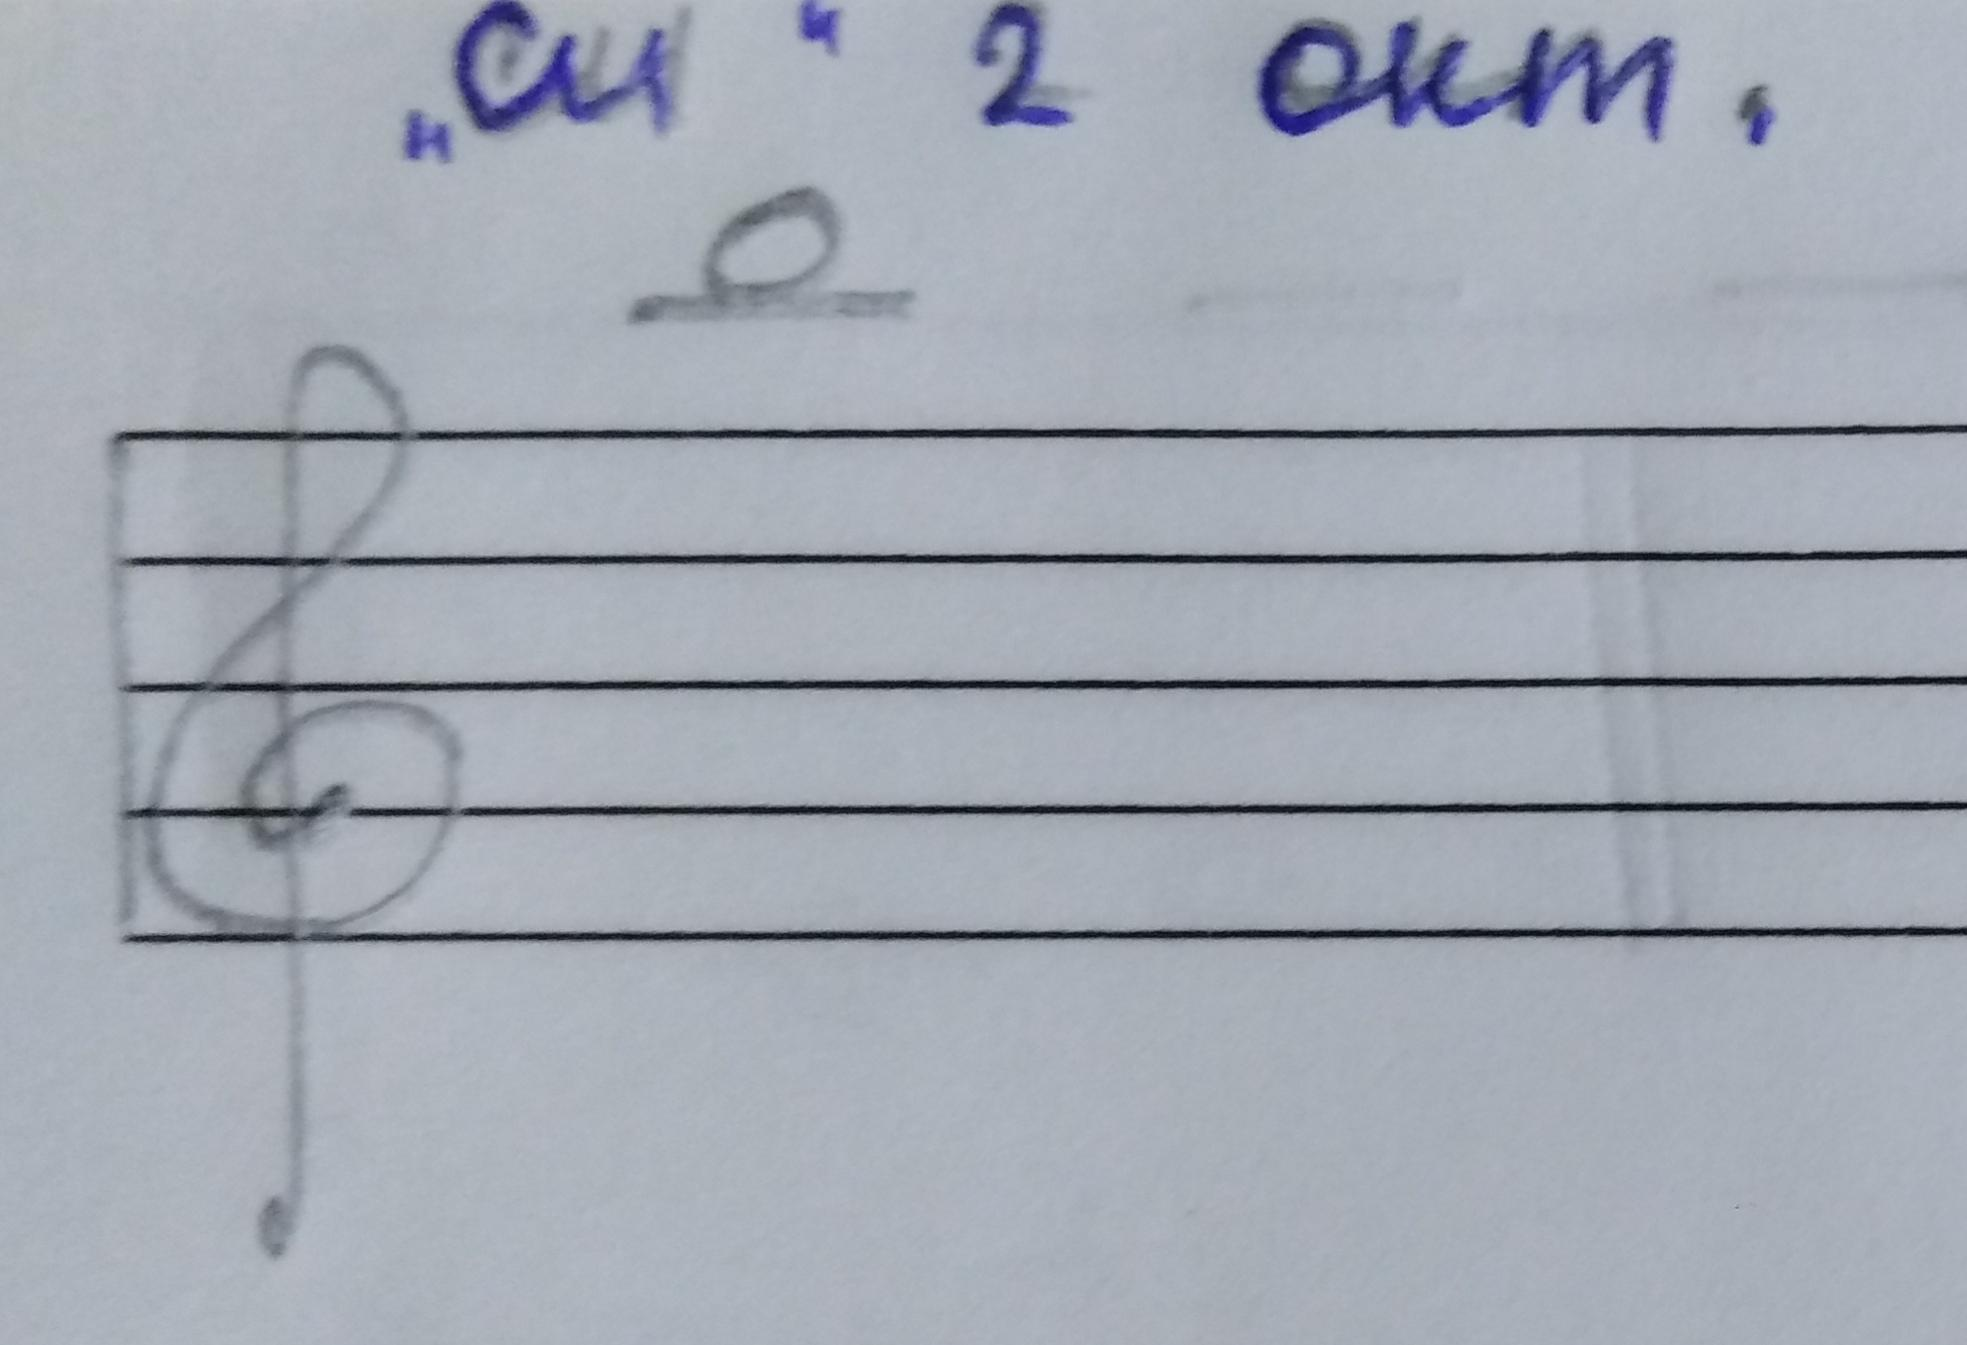 „Си" 2 окт.